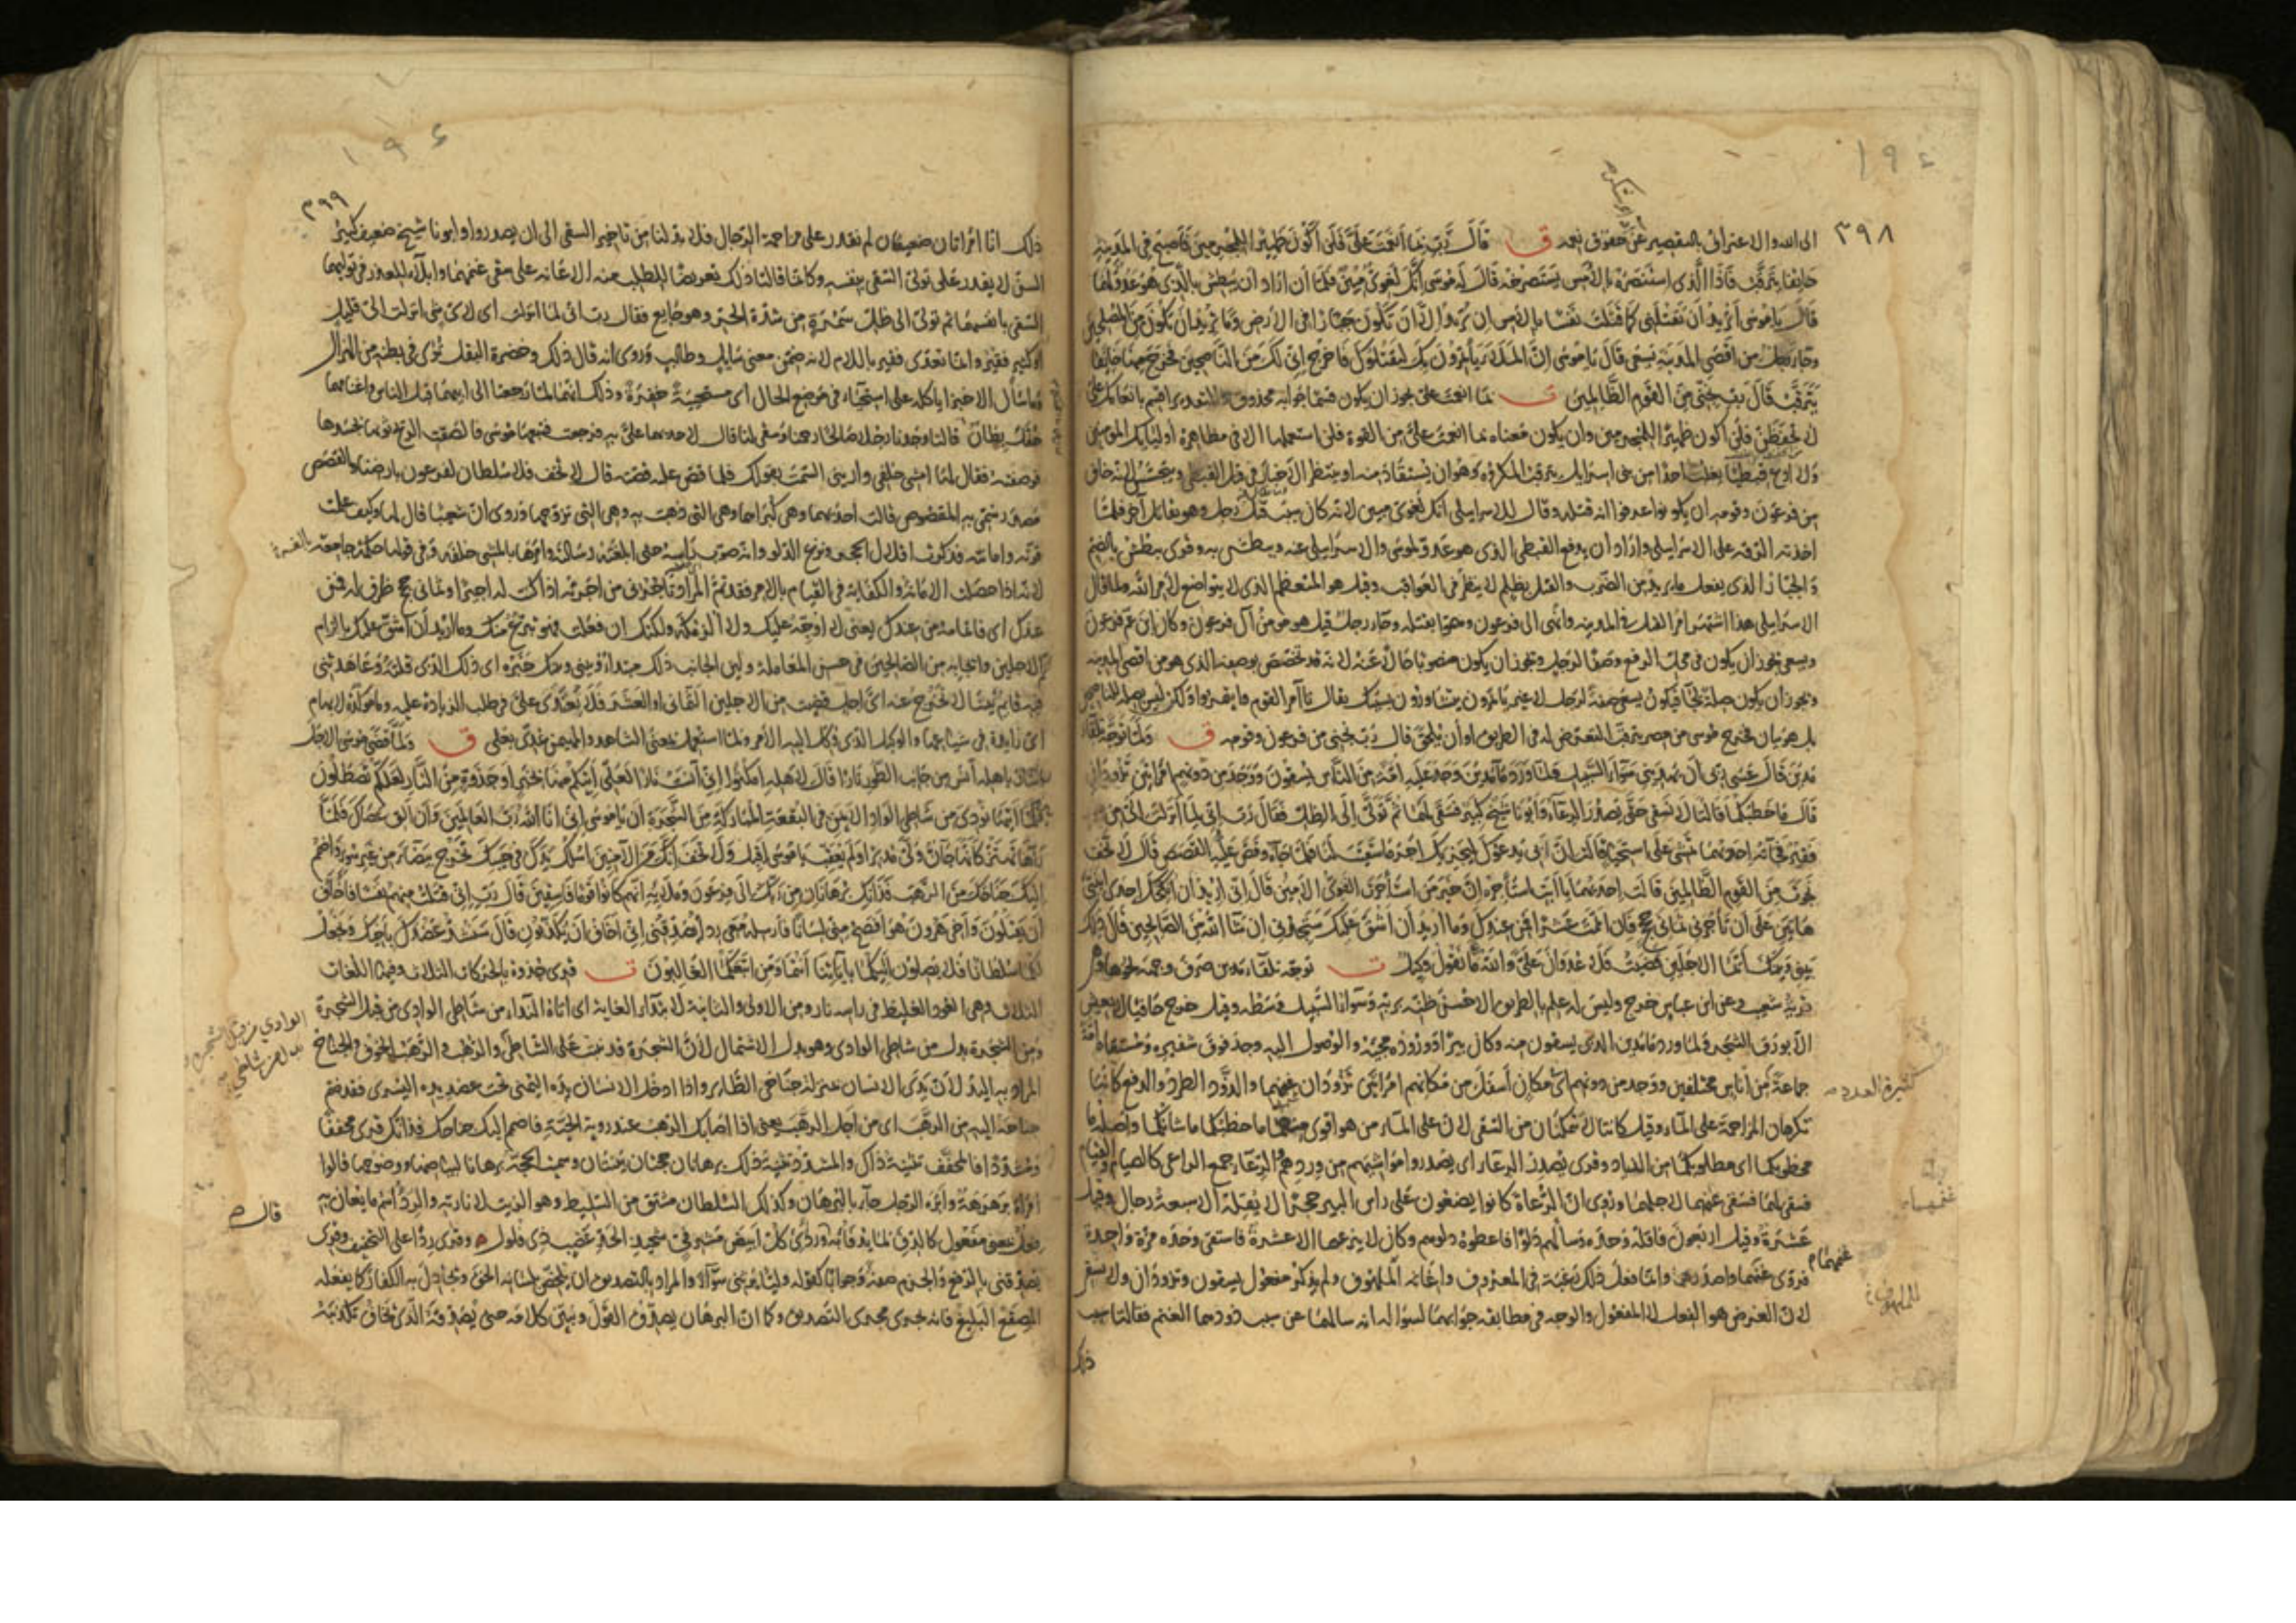 ١٩٤
٣٩٨
الى الله والاعتراف بالتقصير عن حقوق نعمه ق قال رب بما انعمت علي فلن اكون ظهيرا للمجرمين فاصبح في المدينة
خايفا يترقب فاذا الذي استنصره بالامس يستصرخه قال له موسى انك لغوي مبين فلما ان اراد ان يبطش بالذي هو عدو لهما
قال يا موسى اتريد ان تقتلني كما قتلت نفسا بالامس ان تريد الا ان تكون جبارا في الارض وما تريد ان تكون من المصلحين
وجاء رجل من اقصى المدينة يسعى قال يا موسى ان الملأ يأتمرون بك ليقتلوك فاخرج اني لك من الناصحين فخرج منها خايفا
يترقب قال رب نجني من القوم الظالمين ت بما انعمت علي يجوز ان يكون قسما جوابه محذوف والتقدير اقسم بانعامك علي
فلن اكون ظهيرا للمجرمين وان يكون معناه بما انعمت علي من القوة فلن استعملها الا في مظاهرة اوليايك المؤمنين
ولا ادع قبطيا يغلب احدا من بني اسرايل يترقب المكروه وهو ان يستقاد منه او ينتظر الاخبار في قتل القبطي
من فرعون وقومه ان يكونوا عرفوا انه قتله وقال للاسرايلي انك لغوي مبين لانه كان سبب قتل رجل وهو يقاتل آخر فلما
اخذته الرقة على الاسرايلي واراد ان يدفع القبطي الذي هو عدو لموسى والاسرايلي عنه ويبطش به وقرئ يبطش بالضم
والجبار الذي يفعل ما يريد من الضرب والقتل بظلم لا ينظر في العواقب وقيل هو المتعظم الذي لا يتواضع لامر الله فلما قال
الاسرايلي هذا اشتهر امر القتل في المدينة وانهى الى فرعون وهموا بقتله وجاء رجل قيل هو مومن آل فرعون وكان ابن عم فرعون
ويسعى يجوز ان يكون في محل الرفع وصفا لرجل ويجوز ان يكون منصوبا حالا عنه لانه قد تخصص بوصفه الذي هو من اقصى المدينة
ويجوز ان يكون صلة لجاء فيكون يسعى صفة لرجل لا غير يأتمرون يتشاورون بسببك يقال تآمر القوم وايتمروا
قبل هو بيان فخرج موسى من مصر يترقب التعرض له في الطريق او ان يلحق قال رب نجني من فرعون وقومه ق ولما توجه تلقاء
مدين قال عسى ربي ان يهديني سواء السبيل ولما ورد ماء مدين وجد عليه امة من الناس يسقون ووجد من دونهم امراتين تذودان
قال ما خطبكما قالتا لا نسقي حتى يصدر الرعاء وابونا شيخ كبير فسقى لهما ثم تولى الى الظل فقال رب اني لما انزلت الي من
فقير فجاءته احديهما تمشي على استحياء قالت ان ابي يدعوك ليجزيك اجر ما سقيت لنا فلما جاءه وقص عليه القصص قال لا تخف
نجوت من القوم الظالمين قالت احديهما يا ابت استأجره ان خير من استأجرت القوي الامين قال اني اريد ان انكحك احدى ابنتي
هاتين على ان تأجرني ثماني حجج فان اتممت عشرا فمن عندك وما اريد ان اشق عليك ستجدني ان شاء الله من الصالحين قال ذلك
بيني وبينك ايما الاجلين قضيت فلا عدوان علي والله على ما نقول وكيل ت توجه تلقاء مدين صرف وجهه نحوها
قرية شعيب وعن ابن عباس خرج وليس له علم بالطريق الا حسن ظنه بربه وسواء السبيل وسطه وقيل خرج حافيا لا يعيش
الا بورق الشجر ولما ورد ماء مدين الذي يسقون منه وكان بئرا ووروده مجيئه والوصول اليه وجد فوق شفيره ومستقاه امة
جماعة كثيرة العدد من اناس مختلفين ووجد من دونهم اي مكان اسفل من مكانهم امراتين تذودان غنمهما والذود الطرد والدفع كانتا
تكرهان المزاحمة على الماء وقيل كانتا لا تتمكنان من السقي لان على الماء من هو اقوى منهما ما خطبكما ما شأنكما واصله ما
مخطوبكما اي مطلوبكما من الذياد وقرئ يصدر الرعاء اي يصدروا مواشيهم من وردهم والرعاء جمع الراعي كالصيام والقيام
فسقى لهما فسقى غنمهما لاجلهما وروي ان الرعاة كانوا يضعون على راس البير حجرا لا يقله الا سبعة رجال وقيل
عشرة وقيل اربعون فاقله وحده وسألهم دلوا فاعطوه دلوهم وكان لا ينزعها الا عشرة فاستقى وحده مرة واحدة
فروى غنمهما واصدرهما وانما فعل ذلك رغبة في المعروف واغاثة الملهوف ولم يذكر مفعول يسقون وتذودان ولا نسقي
لان الغرض هو الفعل لا المفعول والوجه في مطابقة جوابهما لسواله انه سالهما عن سبب ذودهما الغنم فقالتا سبب
ذلك
كثيرة العدد
غنمهما
للملهوف
١٩٤
٣٩٩
ذلك انا امراتان ضعيفتان لم نقدر على مزاحمة الرجال فلا بد لنا من تاخير السقي الى ان يصدروا وابونا شيخ ضعيف كبير
السن لا يقدر على تولي السقي بنفسه وكانما قالتا ذلك تعريضا للطلب منه الاعانة على سقي غنمهما وابلاء للعذر في توليهما
السقي بانفسهما ثم تولى الى ظل سمرة من شدة الحر وهو جايع فقال رب اني لما انزلت اي لاي شي انزلت الي قليل
او كثير فقير وانما تعدى فقير باللام لانه ضمن معنى سايل وطالب وروي انه قال ذلك وخضرة البقل تُرى في بطنه من الهزال
ما سأل الا خبزا ياكله على استحياء في موضع الحال اي مستحيية خفرة وذلك انهما لما رجعتا الى ابيهما قبل الناس واغنامهما
حفل بطان قالتا وجدنا رجلا صالحا رحمنا وسقى لنا قال لاحديهما علي به فرجعت فتبعها موسى فالصقت الريح ثوبها بجسدها
فوصفته فقال لها امشي خلفي واريني السمت بقولك فلما قص عليه قصته قال لا تخف فلا سلطان لفرعون بارضنا والقصص
مصدر سمي به المقصوص قالت احديهما وهي كبراهما وهي التي ذهبت به وهي التي تزوجها وروي ان شعيبا قال لها وكيف علمت
قوته وامانته فذكرت اقلال الحجر ونزع الدلو وانه صوب راسه حتى ابلغته رسالته وامرها بالمشي خلفه وفي قولها حكمة جامعة
لانه اذا حصلت الامانة والكفاية في القيام بالامر فقد تم المراد وتأجرني من اجرته اذا كنت له اجيرا وثماني حجج ظرف له فمن
عندك اي فاتمامه من عندك يعني لا اوجبه عليك ولا الزمكه ولكنك ان فعلت فهو تبرع منك وما اريد ان اشق عليك بالزام
اتم الاجلين وايجابه من الصالحين في حسن المعاملة ولين الجانب ذلك مبتدأ وبيني وبينك خبره اي ذلك الذي قلته وعاهدتني
فيه قايم بيننا لا نخرج عنه اي اجل قضيت من الاجلين الثماني او العشر فلا يعتدى علي في طلب الزيادة عليه وما موكدة لابهام
اي زايدة في شياعها والوكيل الذي وكل اليه الامر ولما استعمل بمعنى الشاهد والمهيمن عدي بعلى ق ولما قضى موسى الاجل
وسار باهله آنس من جانب الطور نارا قال لاهله امكثوا اني آنست نارا لعلي آتيكم منها بخبر او جذوة من النار لعلكم تصطلون
فلما اتيها نودي من شاطئ الواد الايمن في البقعة المباركة من الشجرة ان يا موسى اني انا الله رب العالمين وان الق عصاك فلما
رآها تهتز كأنها جان ولى مدبرا ولم يعقب يا موسى اقبل ولا تخف انك من الآمنين اسلك يدك في جيبك تخرج بيضاء من غير سوء واضمم
اليك جناحك من الرهب فذانك برهانان من ربك الى فرعون وملائه انهم كانوا قوما فاسقين قال رب اني قتلت منهم نفسا فاخاف
ان يقتلون واخي هرون هو افصح مني لسانا فارسله معي ردءا يصدقني اني اخاف ان يكذبون قال سنشد عضدك باخيك ونجعل
لكما سلطانا فلا يصلون اليكما بآياتنا انتما ومن اتبعكما الغالبون ت قرئ جذوة بالحركات الثلاث وفيها اللغات
الثلاث وهي العود الغليظ في راسه نار ومن الاولى والثانية لابتداء الغاية اي اتاه النداء من شاطئ الوادي من قبل الشجرة
ومن الشجرة بدل من شاطئ الوادي وهو بدل الاشتمال لان الشجرة قد نبتت على الشاطئ والرهب والرهب الخوف والجناح
المراد به اليد لان يدي الانسان بمنزلة جناحي الطاير واذا ادخل الانسان يده اليمنى تحت عضد يده اليسرى فقد ضم
جناحه اليه من الرهب اي من اجل الرهب يعني اذا اصابك الرهب عند روية الحية فاضمم اليك جناحك فذانك قرئ مخففا
ومشددا فالمخفف تثنية ذاك والمشدد تثنية ذلك برهانان حجتان بينتان وسميت الحجة برهانا لبياضها ووضوحها قالوا
امراة برهرهة وابره الرجل جاء بالبرهان وكذلك السلطان مشتق من السليط وهو الزيت لانارته والردء اسم ما يعان به
فعل بمعنى مفعول كالدفء لما يدفأ به وردئي كل ابيض مشرفي شحيذ الحد عضب ذي فلول وقرئ ردا على التخفيف وقرئ
يصدقني بالرفع والجزم صفة وجوابا كقوله وليا يرثني سواء والمراد بالتصديق ان يلخص بلسانه الحق ويجادل به الكفار كما يفعله
المصقع البليغ فانه يجري مجرى التصديق وكما ان البرهان يصدق القول ويبين كلامه حتى يصدقه الذي يخاف تكذيبه
الوادي من قبل الشجرة
بدل من شاطئ
قال